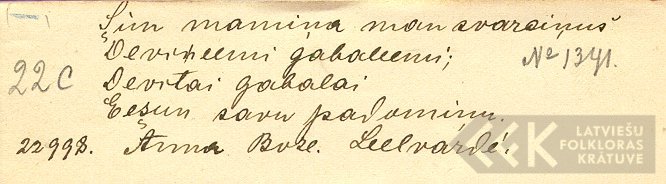 Šūn mamiņa man svarciņus
Deviņeemi gabaleemi;
№ 1341.
22C Devitai gabalai
Eešun savu padomiņu.
22998. Anna Boze. Leelvārdē.
LATVIEŠU
FOLKLORAS
KRĀTUVE